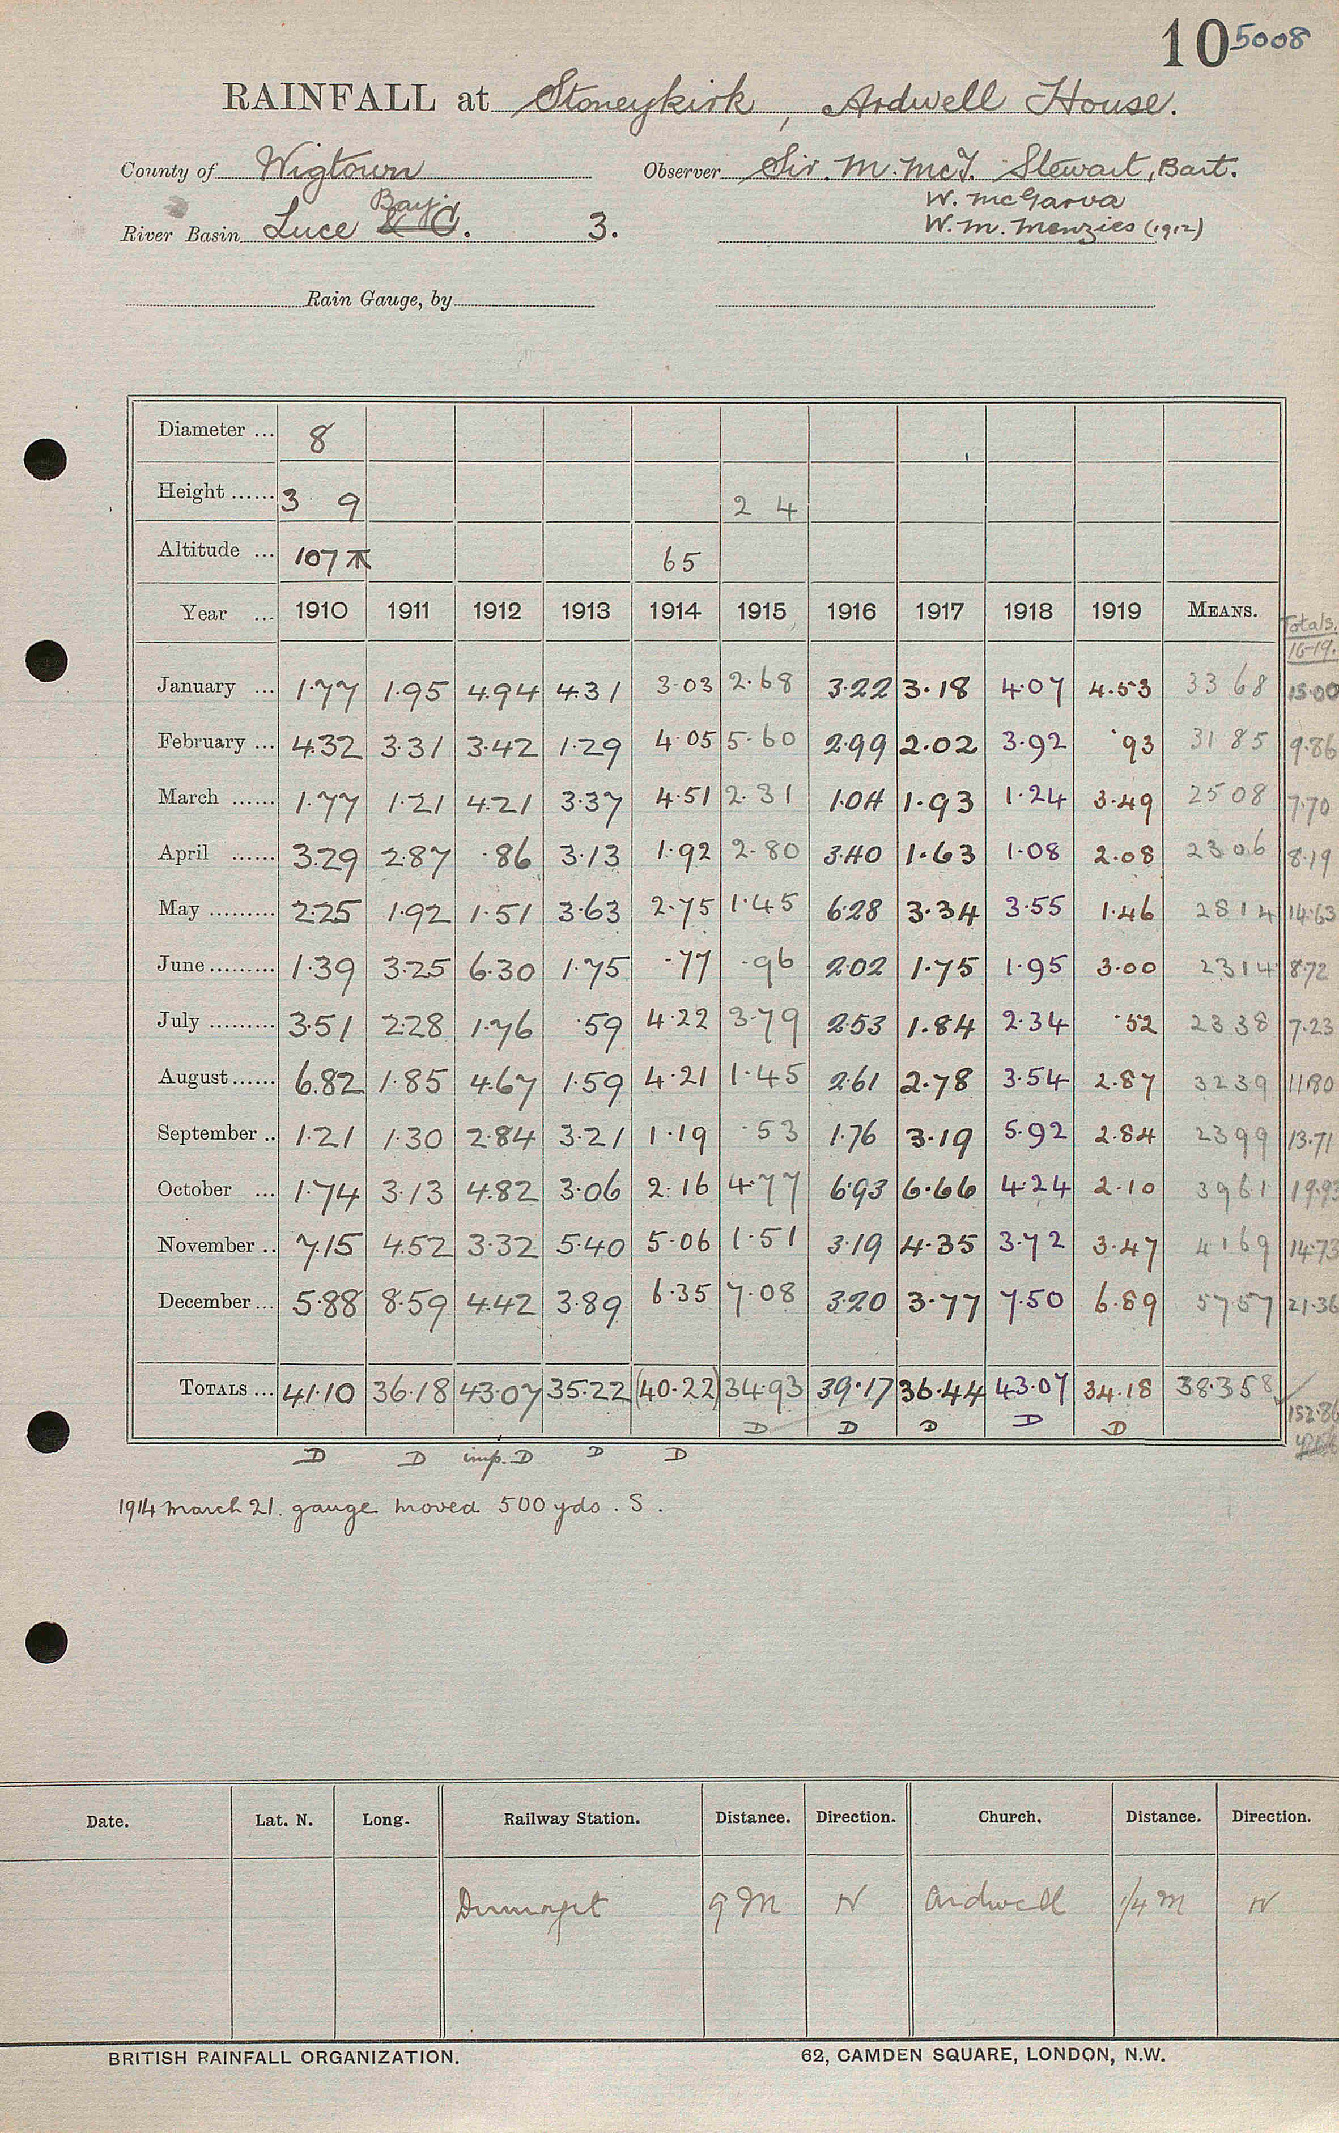 10 5008
RAINFALL at Stoneykirk, Ardwell House.
County of Wigtown Observer Sir. M. McT. Stewart, Bart.
W. McGarva
Bay.
River Basin Luce & C. 3. W. M. Menzies (1912)
Rain Gauge, by
Diameter ... 8
Height ...... 3 9 2 4
Altitude ... 107 65
Year ... 1910 1911 1912 1913 1914 1915 1916 1917 1918 1919 MEANS. Totals.
16-19.
January ... 1.77 1.95 4.94 4.31 3.03 2.68 3.22 3.18 4.07 4.53 33 68 15.00
February ... 4.32 3.31 3.42 1.29 4.05 5.60 2.99 2.02 3.92 .93 31 85 9.86
March ...... 1.77 1.21 4.21 3.37 4.51 2.31 1.04 1.93 1.24 3.49 25 08 7.70
April ...... 3.29 2.87 .86 3.13 1.92 2.80 3.40 1.63 1.08 2.08 23 06 8.19
May ......... 2.25 1.92 1.51 3.63 2.75 1.45 6.28 3.34 3.55 1.46 28 14 14.63
June ......... 1.39 3.25 6.30 1.75 .77 .96 2.02 1.75 1.95 3.00 23 14 8.72
July ......... 3.51 2.28 1.76 .59 4.22 3.79 2.53 1.84 2.34 .52 23 38 7.23
August ...... 6.82 1.85 4.67 1.59 4.21 1.45 2.61 2.78 3.54 2.87 32 39 11.80
September .. 1.21 1.30 2.84 3.21 1.19 .53 1.76 3.19 5.92 2.84 23 99 13.71
October ... 1.74 3.13 4.82 3.06 2.16 4.77 6.93 6.66 4.24 2.10 39 61 19.93
November .. 7.15 4.52 3.32 5.40 5.06 1.51 3.19 4.35 3.72 3.47 41 69 14.73
December ... 5.88 8.59 4.42 3.89 6.35 7.08 3.20 3.77 7.50 6.89 57 57 21.36
TOTALS ... 41.10 36.18 43.07 35.22 (40.22) 34.93 39.17 36.44 43.07 34.18 38.358
152.86
D D D D D
D D imp. D D D
1914 March 21. gauge moved 500 yds. S.
Date. Lat. N. Long. Railway Station. Distance. Direction. Church. Distance. Direction.
9 M N Ardwell 1/4 M N
BRITISH RAINFALL ORGANIZATION. 62, CAMDEN SQUARE, LONDON, N.W.